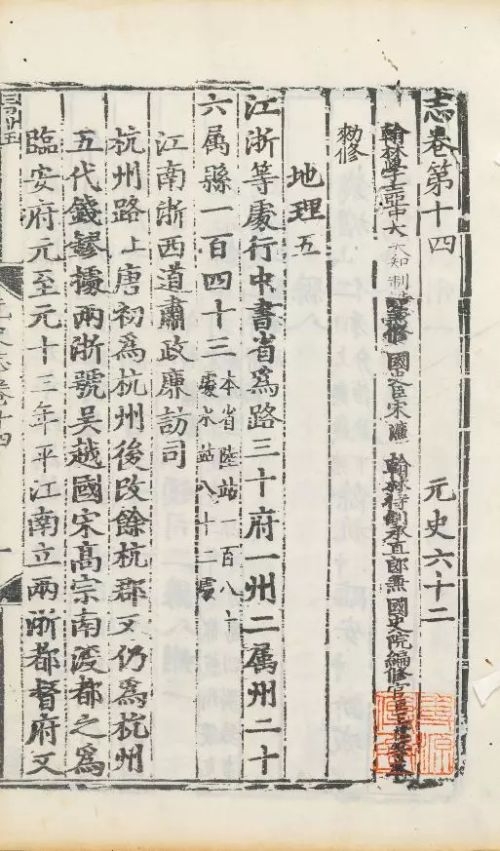 志卷第十四 元史六十二
翰林學士亞中大夫知制誥兼修國史臣宋濂 翰林待制承直郎兼國史院編修官臣王禕等奉
勑修
地理五
江浙等處行中書省為路三十府一州二属州二十
六属縣一百四十三本省陸站一百八十
處水站八十二處
江南浙西道肅政廉訪司
杭州路上唐初為杭州後改餘杭郡又仍為杭州
五代錢鏐據兩浙號吳越國宋髙宗南渡都之為
臨安府元至元十三年平江南立兩浙都督府又